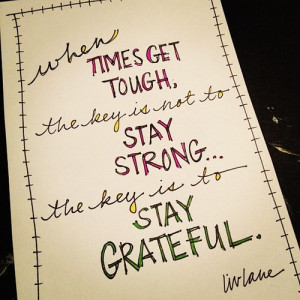 when
TIMES GET
TOUGH,
the key is not to
STAY
STRONG...
the key is to
STAY
GRATEFUL.
liv lane